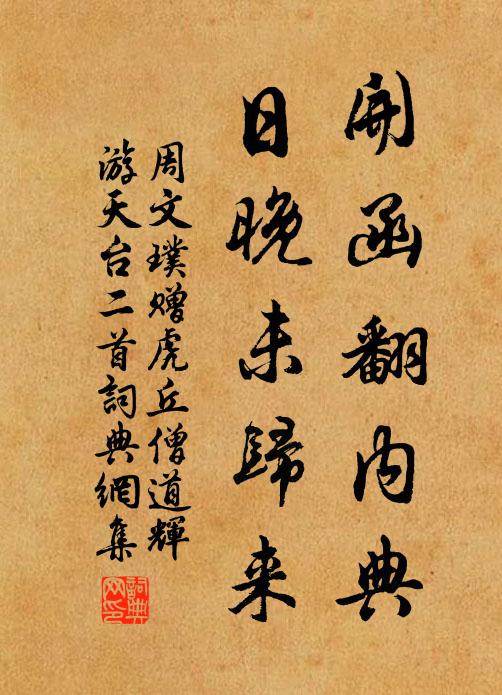 開函翻内典
日晚未歸来
周文璞赠虎丘僧道輝
游天台二首詞典網集
詞典
网印